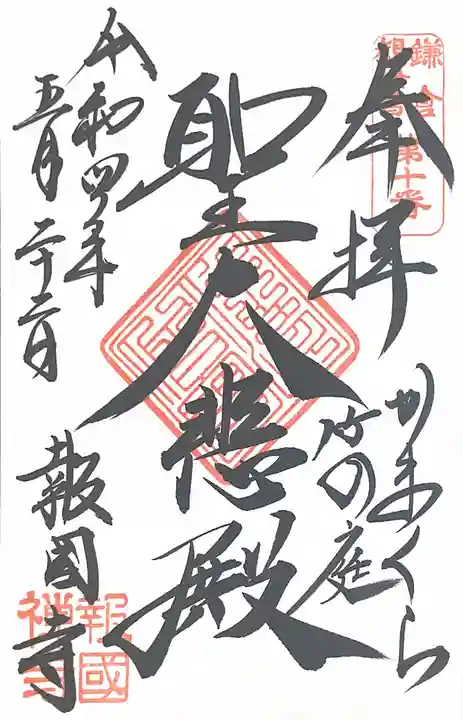 鎌倉
観音第十番
奉拝
かまくら
竹の庭
聖大悲殿
令和四年
五月二十二日
報国寺
報國
禅寺